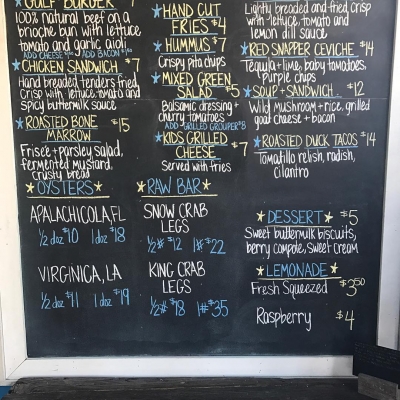 GULF BURGER 7
100% natural beef on a
brioche bun with lettuce
tomato and garlic aioli
ADD CHEESE ADD BACON
★CHICKEN SANDWICH $7
Hand breaded tenders fried,
Crisp with lettuce tomato and
Spicy buttermilk sauce
★ROASTED BONE
MARROW $15
Friseé + parsley salad,
fermented mustard,
crusty bread
★OYSTERS★
APALACHICOLA, FL
1/2 doz $10 1 doz $18
VIRGINICA, LA
1/2 doz $11 1 doz $19
★HAND CUT
FRIES $4
★HUMMUS $7
Crispy pita chips
★MIXED GREEN
SALAD $5
Balsamic dressing +
cherry tomatoes
ADD-GRILLED GROUPER $8
★KIDS GRILLED
CHEESE $7
Served with fries
★RAW BAR★
SNOW CRAB
LEGS
1/2# $12 1# $22
KING CRAB
LEGS
1/2# $18 1# $35
Lightly breaded and fried, crisp
with lettuce, tomato and
lemon dill sauce
★RED SNAPPER CEVICHE $14
Tequila + lime, baby tomatoes,
Purple chips
★SOUP + SANDWICH.. $12
Wild Mushroom + rice, grilled
goat cheese + bacon
★ROASTED DUCK TACOS $14
Tomatillo relish, radish,
cilantro
★DESSERT★ $5
Sweet buttermilk biscuits,
berry compote, sweet cream
★LEMONADE★
Fresh Squeezed $3.50
Raspberry $4